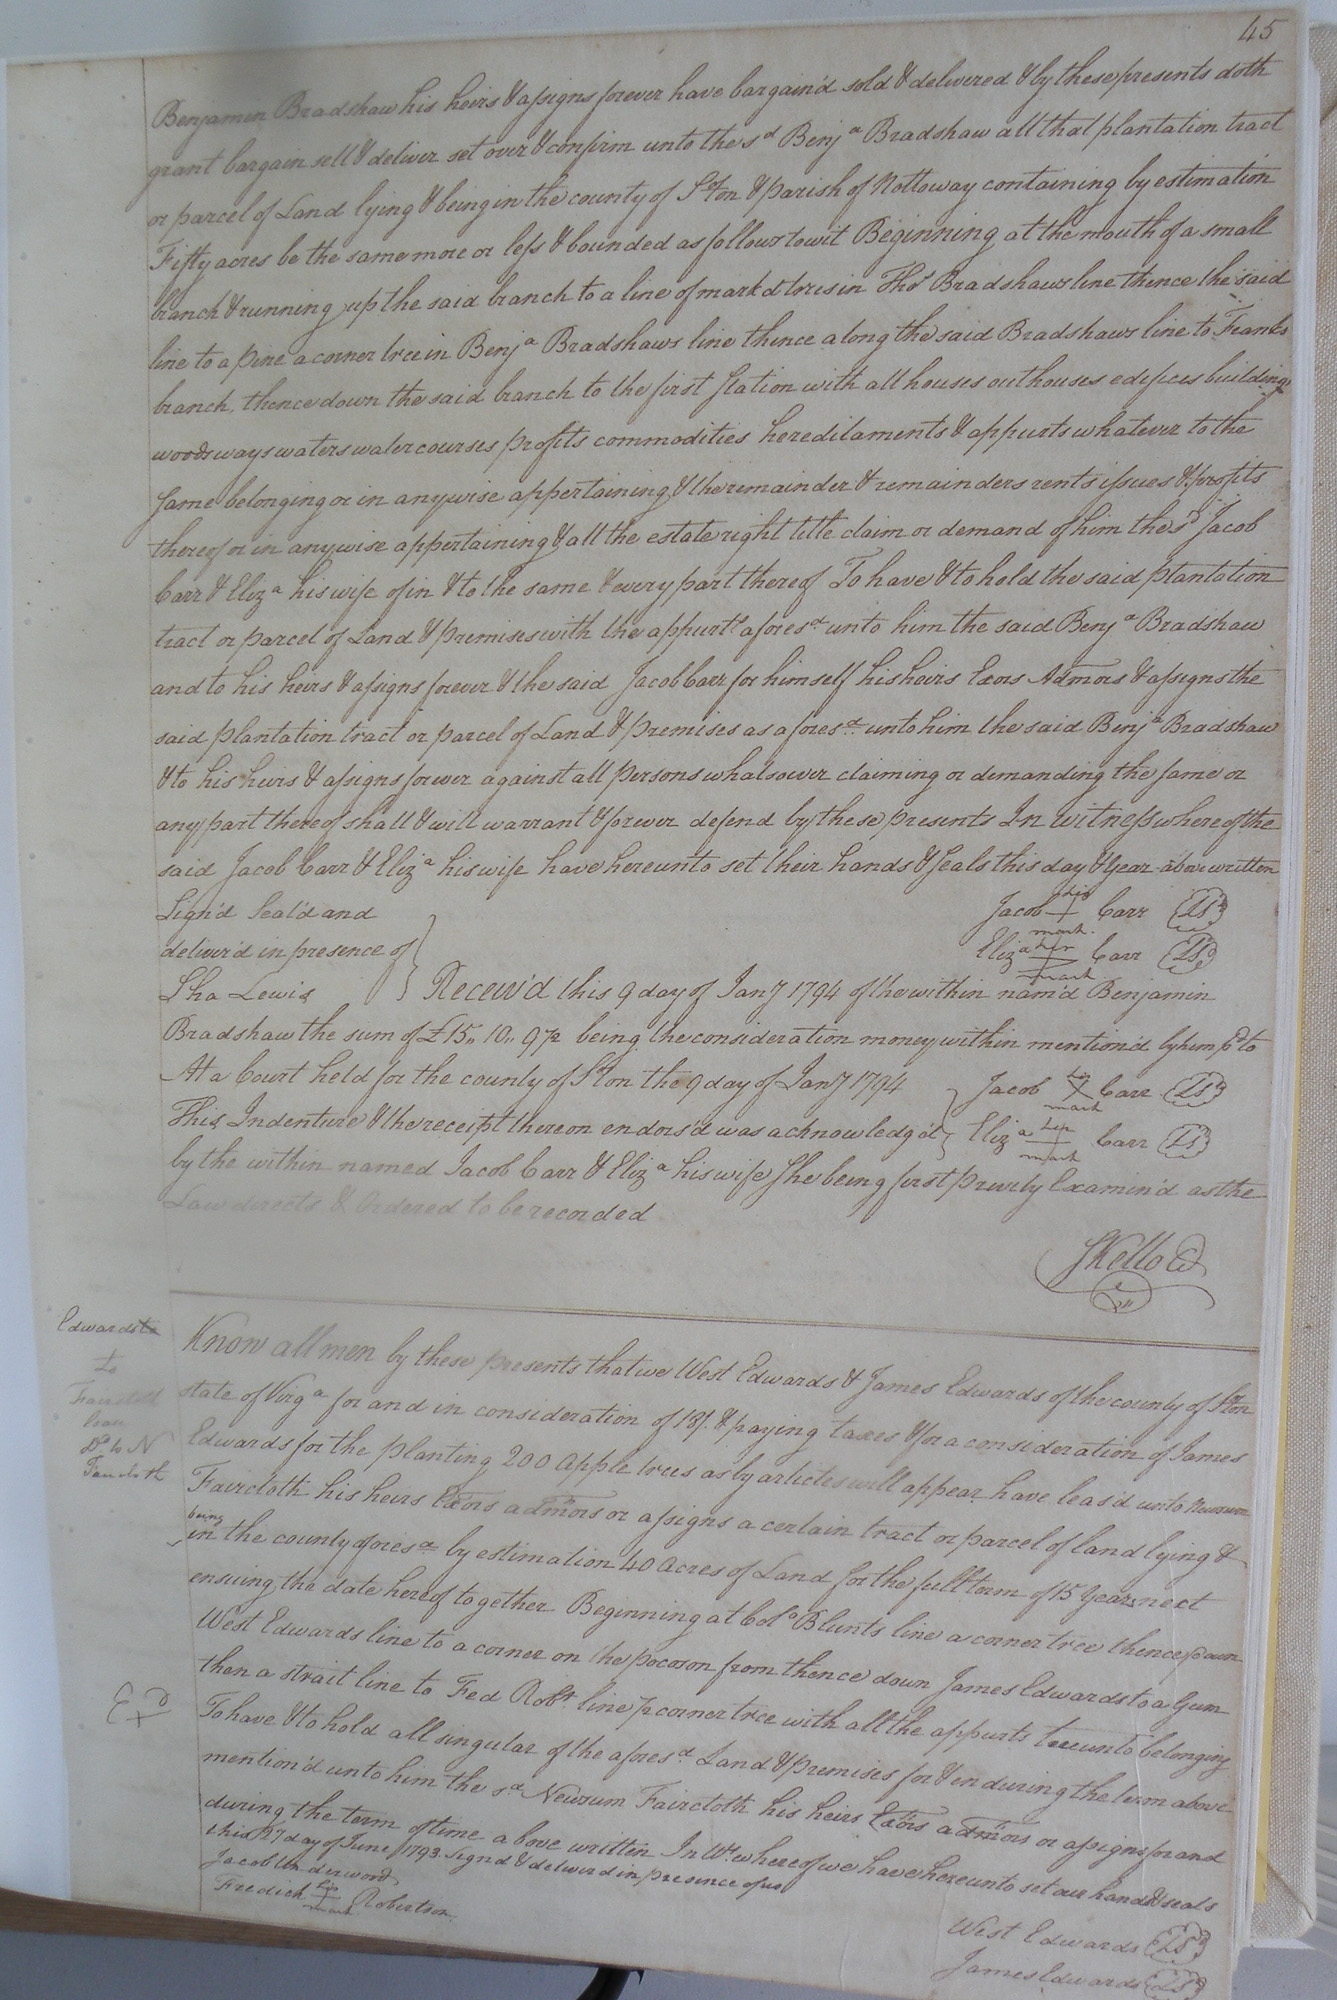 45
Benjamen Bradshaw his heirs & assigns forever have bargain'd sold & delivered & by these presents doth
grant bargain sell & deliver set over & confirm unto the sd Benja Bradshaw all that plantation tract
or parcel of Land lying & being in the county of Ston & parish of Nottoway containing by estimation
Fifty acres be the same more or less & bounded as follows towit Beginning at the mouth of a small
branch & running up the said branch to a line of markd trees in Thos Bradshaws line thence the said
line to a pine a corner tree in Benja Bradshaws line thence along the said Bradshaws line to Franks
branch, thence down the said branch to the first station with all houses outhouses edifices buildings
woods ways waters water courses profits commodities hereditaments & appurts whatever to the
same belonging or in anywise appertaining & the remainder & remainders rents issues & profits
thereof or in anywise appertaining & all the estate right title claim or demand of him the sd Jacob
Carr & Eliza his wife of in & to the same & every part thereof To have & to hold the said plantation
tract or parcel of Land & premises with the appurts aforesd unto him the said Benja Bradshaw
and to his heirs & assigns forever & the said Jacob Carr for himself his heirs Exors Admors & assigns the
said plantation tract or parcel of Land & premises as aforesd unto him the said Benja Bradshaw
& to his heirs & assigns forever against all persons whatsoever claiming or demanding the same or
any part thereof shall & will warrant & forever defend by these presents In witness whereof the
said Jacob Carr & Eliza his wife have hereunto set their hands & seals this day & year above written
Sign'd Seal'd and
Jacob his + mark. Carr (LS)
deliver'd in presence of
Eliza her + mark Carr (LS)
Sha Lewis
Receiv'd this 9 day of Jany 1794 of the within nam'd Benjamin
Bradshaw the sum of £15,, 10,, 9½ being the consideration money within mention'd by him pd to
At a Court held for the county of Ston the 9 day of Jany 1794
Jacob his X mark Carr (LS)
This Indenture & the receipt thereon endors'd was acknowledg'd
Eliza her mark Carr (LS)
by the within named Jacob Carr & Eliza his wife She being first privily Examin'd as the
Law directs & Ordered to be recorded
SKello
Edwards
to
Faircloth
Dd to N
Faircloth
Know all men by these presents that we West Edwards & James Edwards of the county of Ston
state of Virga for and in consideration of 18/. & paying taxes & for a consideration of James
Edwards for the planting 200 apple trees as by articles will appear have leas'd unto Newsum
Faircloth his heirs Exors admors or assigns a certain tract or parcel of land lying &
being
in the county aforesd by estimation 40 Acres of Land for the full term of 15 Years next
ensuing the date hereof together Beginning at Colo Blunts line a corner tree thence down
West Edwards line to a corner on the pocoson from thence down James Edwards to a Gum
then a strait line to Fed Robt line corner tree with all the appurts belonging
To have & to hold all singular of the aforesd Land & premises for & enduring the term above
mention'd unto him the sd Newsum Faircloth his heirs Exors admors or assigns for and
during the term of time above written In Wt whereof we have hereunto set our hands & seals
this 27 day of June 1793 Signd & deliverd in presence of us
Jacob Underwood
Fredick his + mark Robertson
West Edwards (LS)
James Edwards (LS)